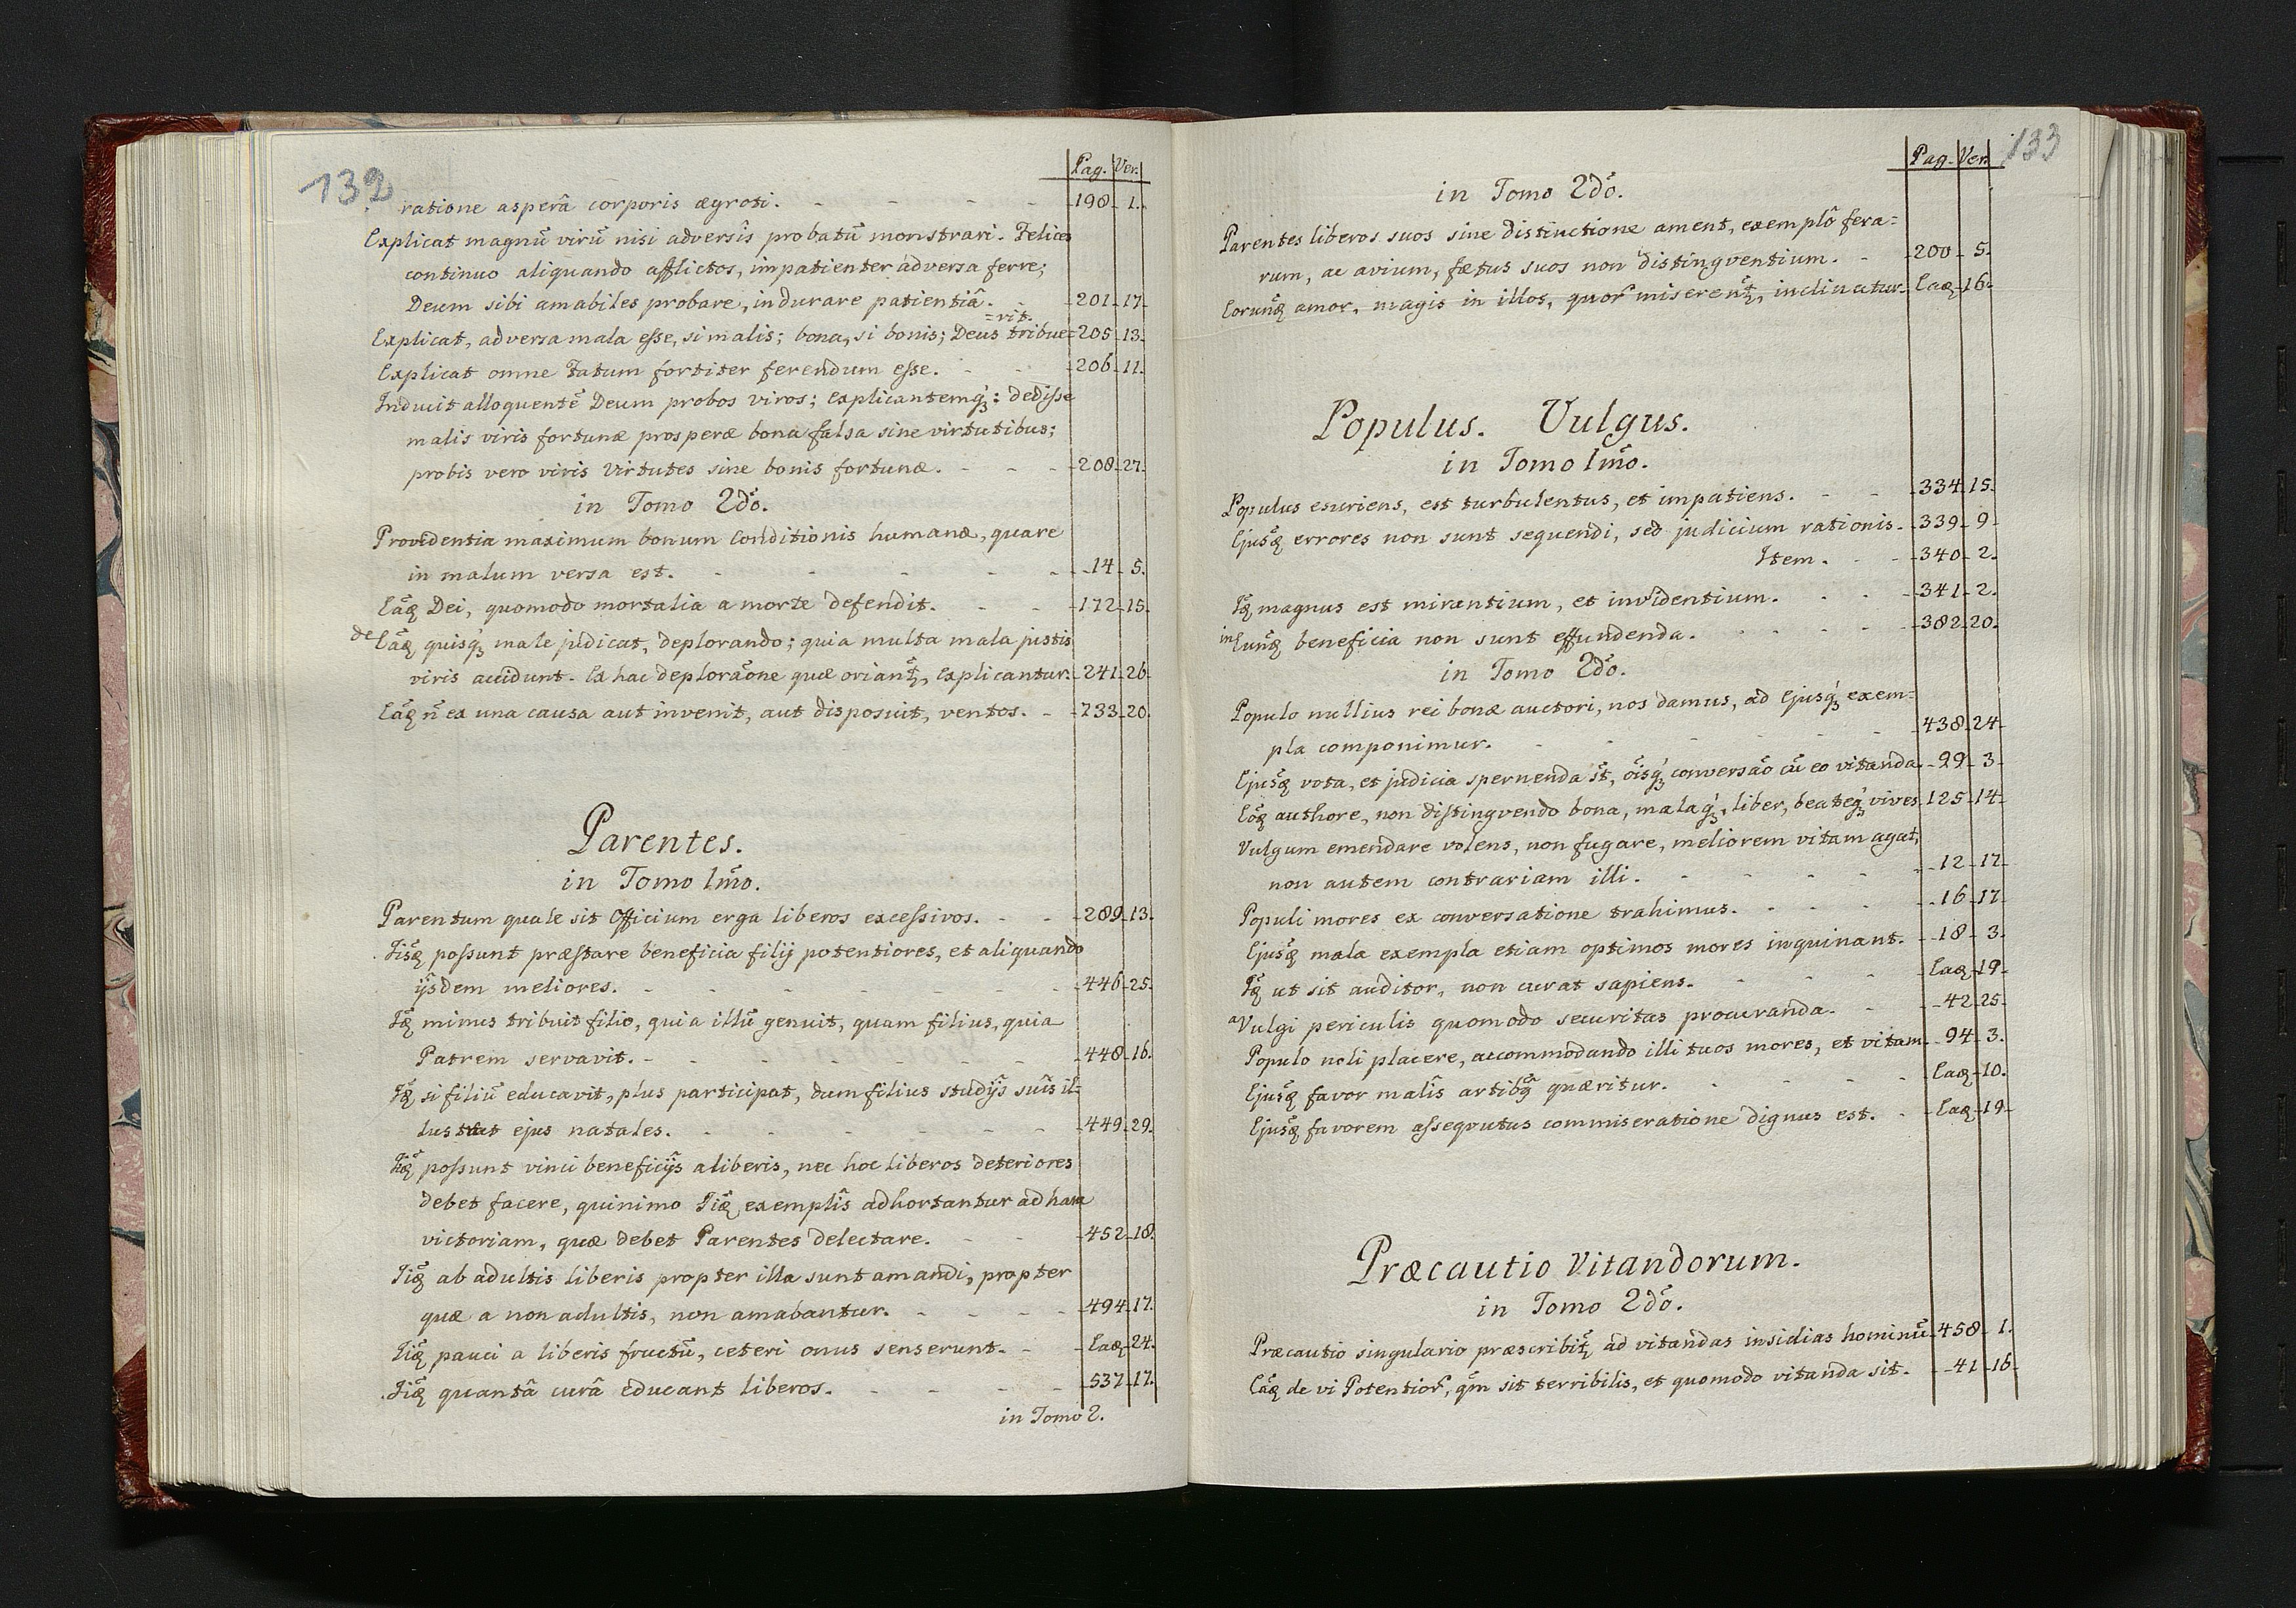 132
Pag. Ver.
ratione asperâ corporis ægroti. - - - - 198. 1.
Explicat magnū virū nisi adversîs probatū monstrari. Felices
continuo aliquando afflictos, impatienter adversa ferre;
Deum sibi amabiles probare, indurare patientiâ. - 201. 17.
=vit.
Explicat, adversa mala esse, si malis; bona, si bonis; Deus tribue= 205. 13.
Explicat omne Fatum fortiter ferendum esse. - - 206. 11.
Inducit alloquentē Deum probos viros; explicantemq́ꝫ: dedisse
malis viris fortunæ prosperæ bona falsa sine virtutibus;
probis vero viris virtutes sine bonis fortunæ. - - - 208. 27.
in Tomo 2dō.
Providentia maximum bonum Conditionis humanæ, quare
in malum versa est. - - - - - 14. 5.
Eāꝗ Dei, quomodo mortalia a morte defendit. - - 172. 15.
de Eāꝗ, quisq́ꝫ male judicat, deplorando; quia multa mala justis
viris accidunt. Ex hac deplorāone quæ oriant̄ꝫ, explicantur. 241. 26.
Eāꝗ n̄ ex una causa aut invenit, aut disposuit, ventos. - 733. 20.
Parentes.
in Tomo 1mō.
Parentum quale sit Officium erga liberos excessivos. - - 289. 13.
Iisꝗ possunt præstare beneficia filij potentiores, et aliquando
ijsdem meliores. - - - - - - 446. 25.
Iꝗ minus tribuit filio, quia illū genuit, quam filius, quia
Patrem servavit. - - - - - - 448. 16.
Iꝗ si filiū educavit, plus participat, dum filius studijs suîs il=
lustrat ejus natales. - - - - - - 449. 29.
Iiꝗ possunt vinci beneficijs a liberis, nec hoc liberos deteriores
debet facere, quinimo Iiꝗ exemplîs adhortantur ad hanc
victoriam, quæ debet Parentes delectare. - - 452. 18.
Iiꝗ ab adultis liberis propter illa sunt amandi, propter
quæ a non adultis, non amabantur. - - - - 494. 17.
Iiꝗ pauci a liberis fructū, ceteri onus senserunt. - Eaꝗ 24.
Iiꝗ quantâ curâ educant liberos. - - - - 537. 17.
in Tomo 2.
133
Pag. Ver.
in Tomo 2dō.
Parentes liberos suos sine distinctione ament, exemplô fera=
rum, ac avium, fœtus suos non distingventium. - 200. 5.
Eorunꝗ amor, magis in illos, quor̄ miserent̄ꝫ, inclinatur. Eaꝗ 16.
Populus. Vulgus.
in Tomo 1mō.
Populus esuriens, est turbulentus, et impatiens. - - 334. 15.
Ejusꝗ errores non sunt sequendi, sed judicium rationis. 339. 9.
Item. - - 340. 2.
Iꝗ magnus est mirantium, et invidentium. - - - 341. 2.
in Eunꝗ beneficia non sunt effundenda. - - - - 382. 20.
in Tomo 2dō.
Populo nullius rei bonæ auctori, nos damus, ad Ejusq́ꝫ exem=
pla componimur. - - - - - 438. 24.
Ejusꝗ vota, et judicia spernenda st̄, ōisq́ꝫ conversāo cū eo vitanda. 29. 3.
Eōꝗ authore, non distingvendo bona, malaq́ꝫ, liber, beateq́ꝫ vives. 125. 14.
Vulgum emendare volens, non fugare, meliorem vitam agat,
non autem contrariam illi. - - - - 12. 17.
Populi mores ex conversatione trahimus. - - - - 16. 17.
Ejusꝗ mala exempla etiam optimos mores inquinant. 18. 3.
Iꝗ ut sit auditor, non curat sapiens. - - - Eaꝗ 19.
a Vulgi periculis quomodo securitas procuranda. - - 42. 25.
Populo noli placere, accommodando illi tuos mores, et vitam. 94. 3.
Ejusꝗ favor malîs artibꝗ quæritur. - - - - Eaꝗ 10.
Ejusꝗ favorem assequutus commiseratione dignus est. - Eaꝗ 19.
Præcautio Vitandorum.
in Tomo 2dō.
Præcautio singulario præscribit̄ꝫ ad vitandas insidias hominū. 458. 1.
Eāꝗ de vi Potentior̄, q̄m sit terribilis, et quomodo vitanda sit. - 41. 16.